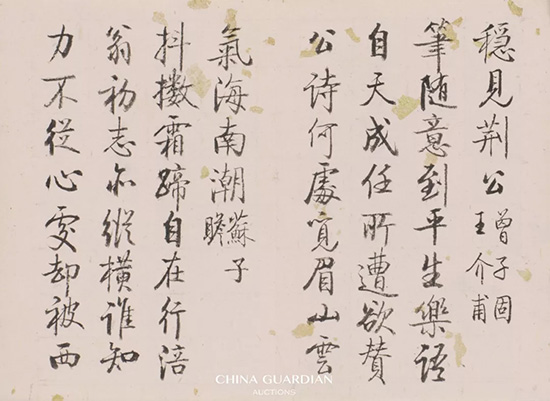 穩見荆公 曾子固 王介甫
筆随意到平生樂語
自天成任所遭欲賛
公诗何處覓眉山雲
氣海南潮 蘇子瞻
抖擻霜蹄自在行涪
翁初志亦縱橫誰知
力不從心處却被西
CHINA GUARDIAN
AUCTIONS